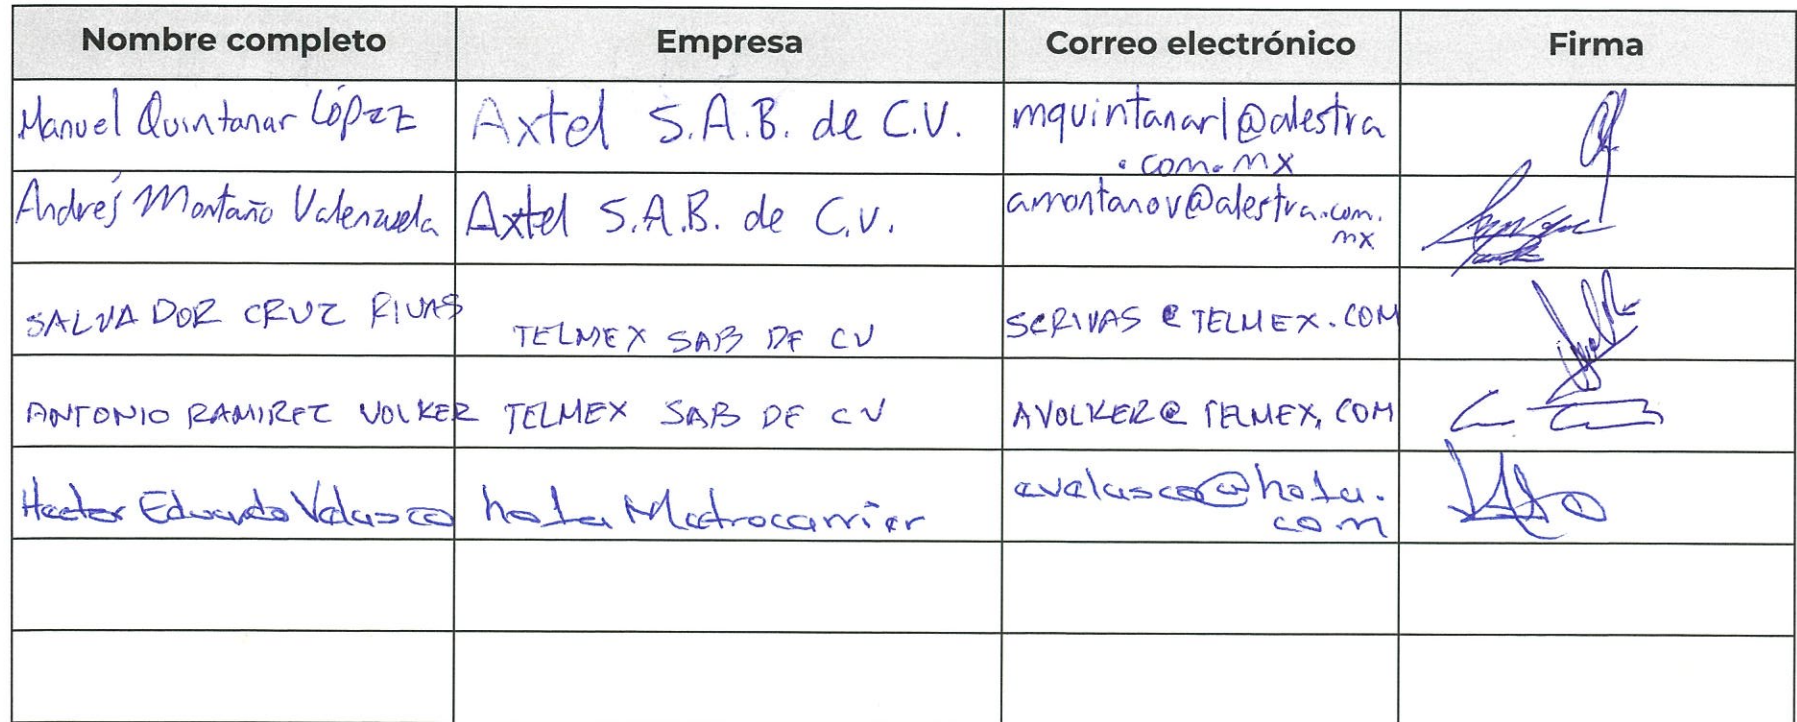 Nombre completo Empresa Correo electrónico Firma
Manuel Quintanar López Axtel S.A.B. de C.V. mquintanarl@alestra
.com.mx
Andrés Montaño Valenzuela Axtel S.A.B. de C.V. amontanov@alestra.com.
mx
SALVADOR CRUZ RIVAS TELMEX SAB DE CV SCRIVAS@TELMEX.COM
ANTONIO RAMIREZ VOLKER TELMEX SAB DE CV AVOLKER@TELMEX.COM
Hector Eduardo Velasco Metrocarrier